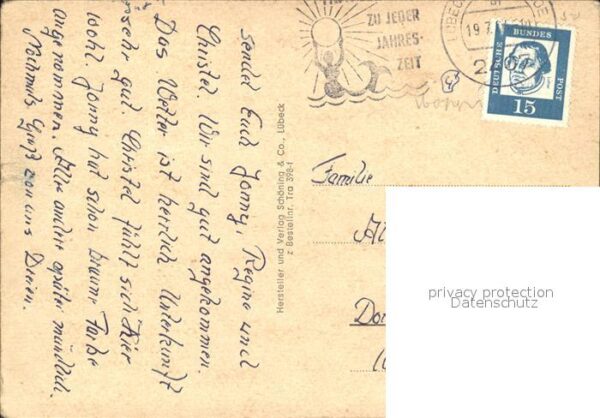 ZU JEDER
JAHRES-
ZEIT
LÜBECK
19.7.
DEUTSCHE BUNDES POST
15
sendet Euch Jonny, Regine und
Christel. Wir sind gut angekommen.
Das Wetter ist herrlich Unterkunft
sehr gut. Christel fühlt sich hier
wohl. Jonny hat schon braune Farbe
angenommen. Alles andere später mündlich.
Nochmals Gruß von uns Dreien.
Hersteller und Verlag Schöning & Co., Lübeck
z Bestellnr. Tra 398-f
Familie
Al
Do
privacy protection
Datenschutz